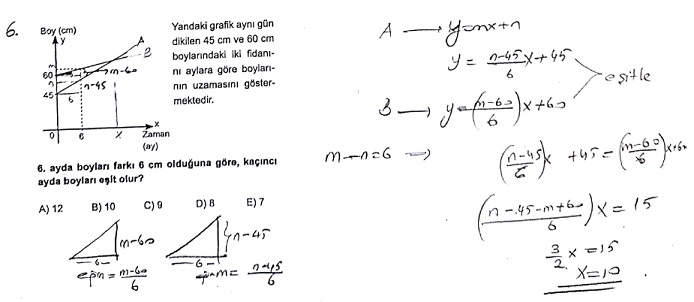 6.
Boy (cm)
y
A
B
m
60
n
45
m-60
n-45
6
0
6
x
x
Zaman
(ay)
Yandaki grafik aynı gün
dikilen 45 cm ve 60 cm
boylarındaki iki fidanı-
nı aylara göre boyları-
nın uzamasını göster-
mektedir.
6. ayda boyları farkı 6 cm olduğuna göre, kaçıncı
ayda boyları eşit olur?
A) 12 B) 10 C) 9 D) 8 E) 7
m-60
6
eğim = m-60/6
n-45
6
eğim = n-45/6
A → y=mx+n
y = n-45/6 x+45
B → y=(m-60/6)x+60
eşitle
m-n=6 ⇒ (n-45/6)x +45=(m-60/6)x+60
(n-45-m+60/6)x = 15
3/2 x =15
x=10